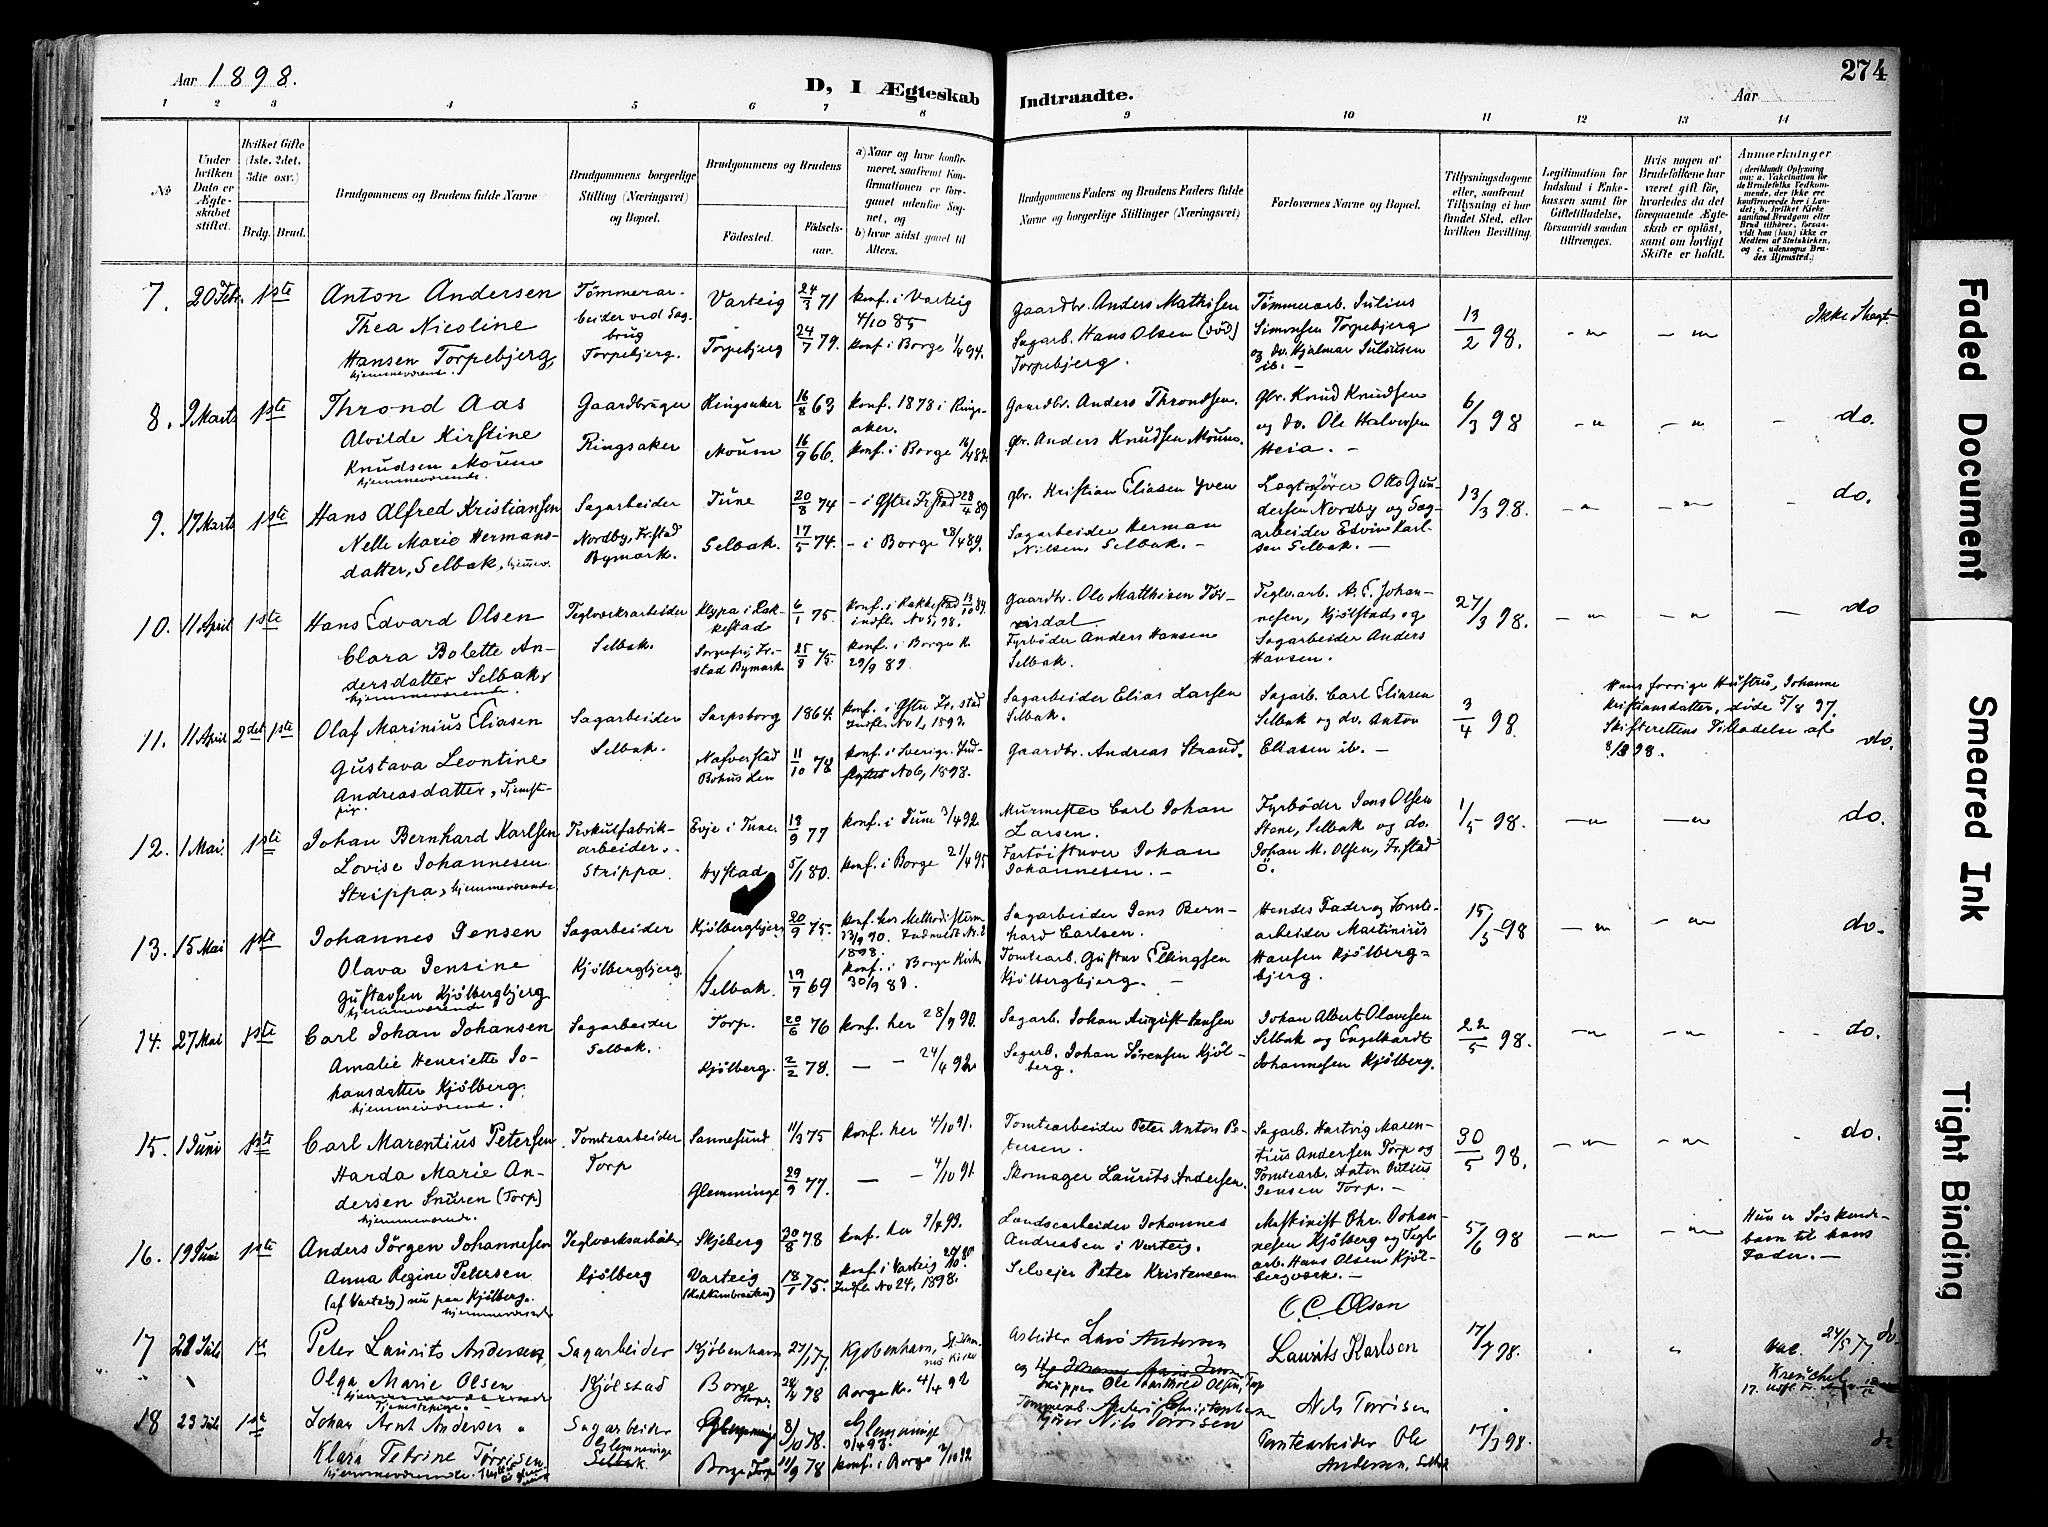 Aar 1898.
D, I Ægteskab Indtraadte.
Aar
274
1 2 3 4 5 6 7 8 9 10 11 12 13 14
No
Under hvilken Dato er Ægteskabet stiftet.
Hvilket Gifte (1ste, 2det, 3die osv.)
Brdg. Brud.
Brudgommens og Brudens fulde Navne
Brudgommens borgerlige Stilling (Næringsvei) og Bopæl.
Brudgommens og Brudens
Fødested.
Fødselsaar.
a) Naar og hvor konfirmeret, saafremt Konfirmationen er foregaaet udenfor Sognet, og
b) hvor sidst gaaet til Alters.
Brudgommens Faders og Brudens Faders fulde Navne og borgerlige Stillinger (Næringsvei)
Forlovernes Navne og Bopæl.
Tillysningsdagene eller, saafremt Tillysning ei har fundet Sted, efter hvilken Bevilling.
Legitimation for Indskud i Enkekassen samt for Giftetilladelse, forsaavidt saadan tiltrænges.
Hvis nogen af Brudefolkene har været gift før, hvorledes da det foregaaende Ægteskab er opløst, samt om lovligt Skifte er holdt.
Anmærkninger
(deriblandt Oplysning om: a. Vakcination for de Brudefolks Vedkommende, der ikke ere konfirmerede her i Landet; b. hvilket Kirkesamfund Brudgom eller Brud tilhører, forsaavidt han (hun) ikke er Medlem af Statskirken, og c. udensogns Brudes Hjemsted.)
7. 20 Febr. 1ste
Anton Andersen
Thea Nicoline
Hansen Torpebjerg,
hjemmeværende.
Tømmerarbeider ved Sagbrug
Torpebjerg.
Varteig 24/3 71
konf. i Varteig 4/10 85
Torpebjerg 24/7 79.
konf. i Borge 1/4 94.
Gaardbr. Anders Mathisen
Sagarb. Hans Olsen (død)
Torpebjerg.
Tømmerarb. Julius
Simonsen Torpebjerg
og do. Hjalmar Juliusen
ib. –
13/2 98.
Ikke Slegt.
8. 9 Marts 1ste
Thrond Aas
Alvilde Kirstine
Knudsen Moum
hjemmeværende.
Gaardbruger
Ringsaker
Ringsaker 16/8 63
konf. 1878 i Ringsaker.
Moum 16/9 66.
konf. i Borge 16/4 82
Gaardbr. Anders Throndsen.
Gbr. Anders Knudsen Moum.
Gbr. Knud Knudsen
og do. Ole Halvorsen
Heia. –
6/3 98
do.
9. 17 Marts 1ste
Hans Alfred Kristiansen
Nelle Marie Hermansdatter, Selbak, hjemmev.
Sagarbeider
Nordby, Fr.stad
Bymark.
Tune 20/8 74
– i Østre Fr.stad 28/4 89
Selbak. 17/5 74.
– i Borge 28/4 89.
Gbr. Kristian Eliasen Yven
Sagarbeider Herman
Nielsen, Selbak. –
Lagtsfører Otto Gundersen Nordby og Sagarbeider Edvin Karlsen Selbak. –
13/3 98.
do.
10. 11 April 1ste
Hans Edvard Olsen
Clara Bolette Andersdatter Selbak,
hjemmeværende.
Teglverksarbeider
Selbak.
Klypa i Rakkestad 6/1 75.
konf. i Rakkestad 13/10 89
indfl. No 5, 98.
Sorgenfri, Fr.stad Bymark
konf. i Borge K.
29/9 89.
Gaardbr. Ole Matthisen
Fyrbøder Anders Hansen
Selbak.
Teglv.arb. A. E. Johannesen, Kjølstad, og
Sagarbeider Anders
Hansen.
27/3 98.
do
11. 11 April 2det 1ste
Olaf Marinius Eliasen
Gustava Leontine
Andreasdatter, Tjenestpige.
Sagarbeider
Selbak.
Sarpsborg 1864.
konf. i Østre Fr.stad
Indfl. No 1, 1893.
Nafverstad
Bohus Len 11/10 78
konf. i Sverige. Indflyttet No 6, 1898.
Sagarbeider Elias Larsen
Selbak.
Gaardbr. Andreas Strand.
Sagarb. Carl Eliasen
Selbak og do. Anton
Eliasen ib. –
3/4 98.
Hans forrige Hustru, Johanne
Kristiansdatter, døde 5/8 97.
Skifterettens Tilladelse af
98.
do.
12. 1 Mai. 1ste
Johan Bernhard Karlsen
Lovise Johannesen
Strippa, hjemmeværende.
arbeider.
Strippa.
Evje i Tune. 18/9 77
konf. i Tune 3/4 92
Hystad 5/1 80.
konf. i Borge 21/4 95
Murmester Carl Johan
Larsen.
Johan
Johannesen. –
Fyrbøder Jens Olsen
Stene, Selbak og do.
Johan M. Olsen, Fr.stad
Ø.
1/5 98.
do.
13. 15 Mai 1ste
Johannes Jensen
Olava Jensine
Gustavsen Kjølbergbjerg
hjemmeværende
Sagarbeider
Kjølbergbjerg
Kjølbergbjerg 20/9 75.
konf. hos Methodisterne
Indmeldt Nr. 2
1898.
Selbak. 19/7 69
konf. i Borge Kirke
30/9 83.
Sagarbeider Jens Bernhard Carlsen.
Tomtearb. Gustav Ellingsen
Kjølbergbjerg. –
Hendes Fader og Tomtearbeider Martinius
Hansen Kjølbergbjerg.
15/5 98
do.
14. 27 Mai 1ste
Carl Johan Johansen
Amalie Henriette Johansdatter Kjølberg.
hjemmeværende.
Sagarbeider
Selbak.
Torp. 20/6 76
konf. her 28/9 90.
Kjølberg. 2/2 78.
– – 24/4 92
Sagarb. Johan August Hansen
Sagarb. Johan Sørensen Kjølberg.
Johan Albert Olavesen
Selbak og Engelhardt
Johannesen Kjølberg.
22/5 98.
do.
15. 1 Juni 1ste
Carl Marentius Petersen
Harda Marie Andersen Snuren (Torp)
hjemmeværende.
Tomtearbeider
Torp
Sannesund 11/3 75
konf. her 4/10 91.
Glemminge 29/9 77.
– – 4/10 91.
Tomtearbeider Peter Anton Petersen.
Skomager Laurits Andersen.
Sagarb. Hartvig Marentius Andersen Torp og
Tomtearb. Anton Julius
Jensen Torp. –
30/5 98.
do.
16. 19 Juni 1ste
Anders Jørgen Johannesen
Anna Regine Petersen
(af Varteig) nu paa Kjølberg.
hjemmeværende
Teglverksarbeider
Kjølberg
Skjeberg 30/8 78
konf. her 9/4 93.
Varteig 18/1 75.
konf. i Varteig
Indfl. No 24, 1898.
Landsarbeider Johannes
Andreasen i Varteig.
Selveier Peter Kristensen
Maskinist Chr. Johannesen Kjølberg og Teglarb. Hans Olsen Kjølbergværk. –
5/6 98
Hun er Søskendebarn til hans
Fader. –
17 28 Juli 1st
Peter Laurits Andersen,
Olga Marie Olsen
Sagarbeider
Kjølstad
Kjøbenhavn
Kjøbenhavn,
Borge
Torp.
Borge K. 4/4 92
Arbeider Lars Andersen
Skipper Ole Barthold Olsen, Torp
C. C. Olsen
Laurits Karlsen
17/7 98.
Vac. 24/5 77.
do
18 23 Juli 1st
Johan Arnt Andersen
Klara Petrine Tørrisen
hjemmeværende.
Sagarbeider
Glemminge
Selbak
Glemminge 8/10 78.
Glemminge
Borge Torp 11/9 78
konf. i Borge 2/10 92
Nils Torrisen
Nils Torrisen
Tomtearbeider Ole
Andersen, Selbak
98.
do
Faded Document
Smeared Ink
Tight Binding